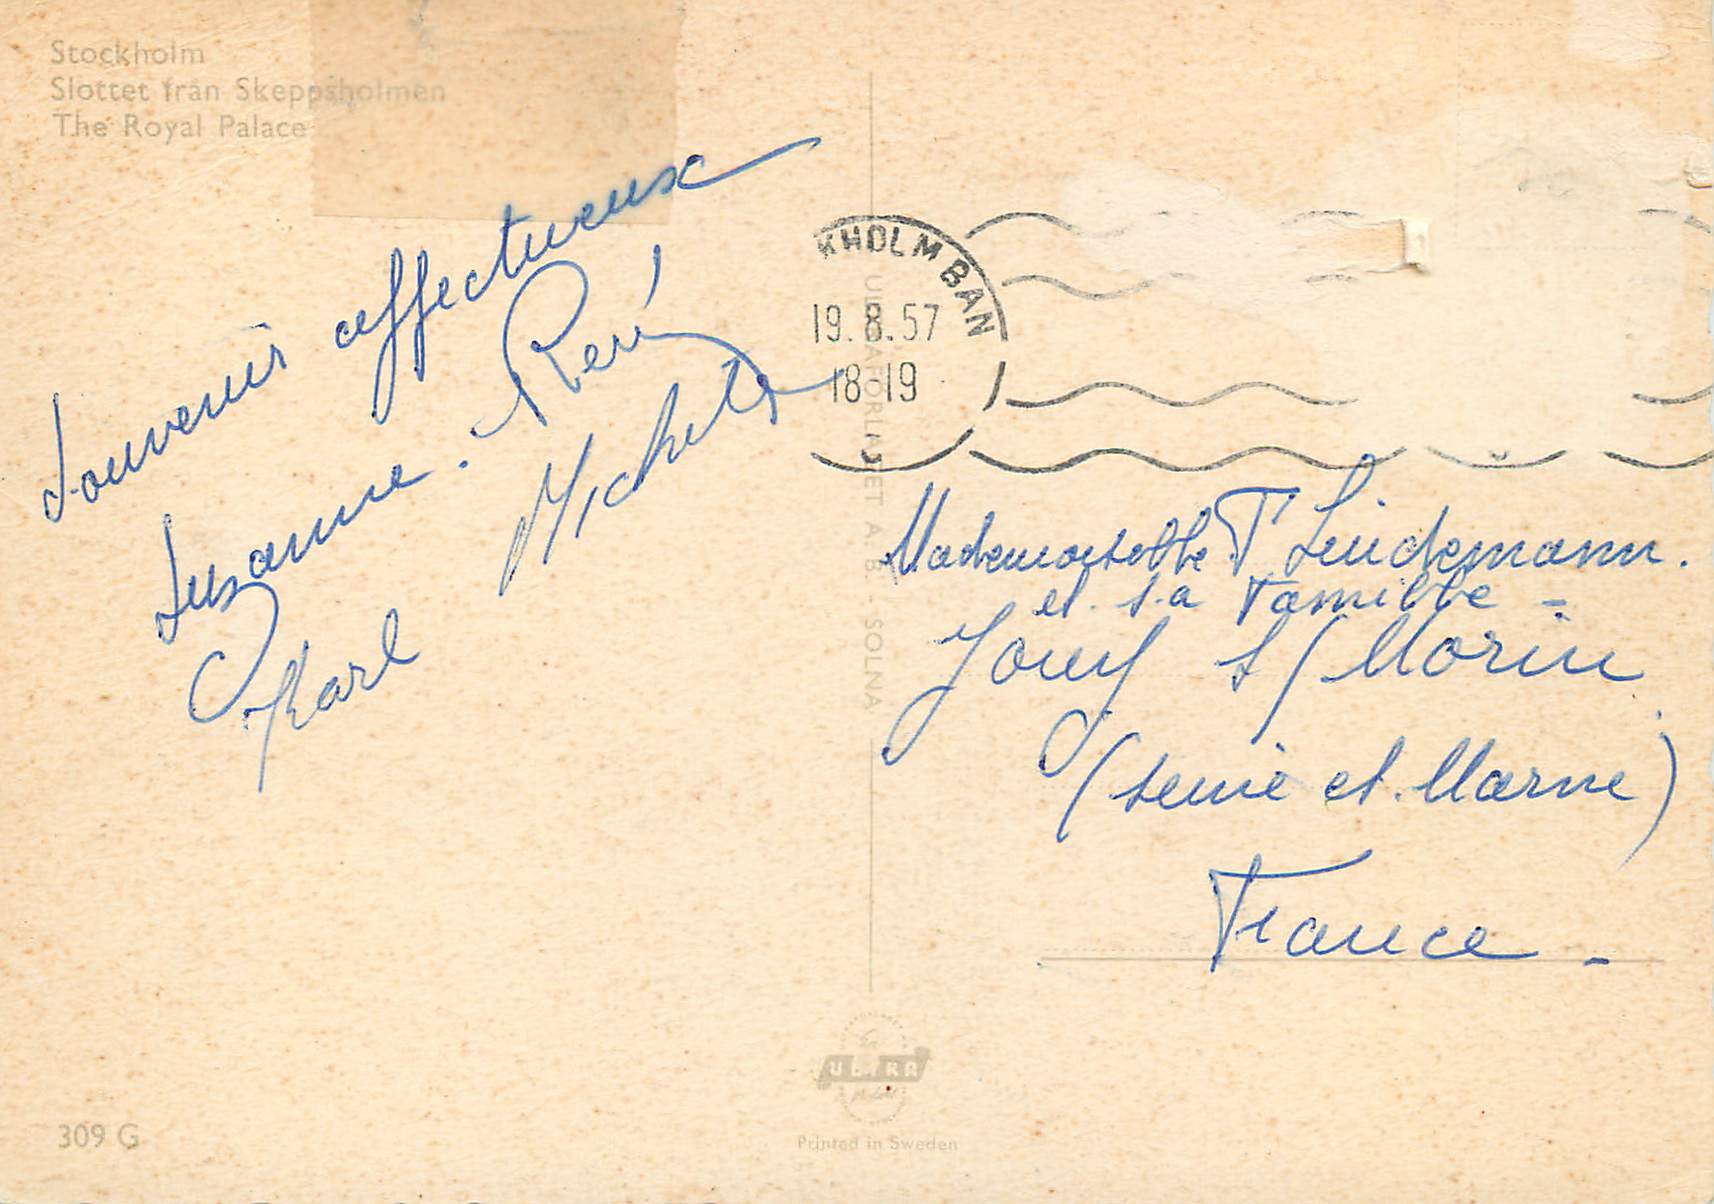 Stockholm
Slottet från Skeppsholmen
The Royal Palace
Souvenir affectueux
Suzanne. René
Michel
Karl
KHOLM BAN
19.8.57
18-19
ULTRAFÖRLAGET A. B. SOLNA
Mademoiselle T Lindemann.
et sa Famille -
Jouy s/ Morin
(Seine et Marne)
France -
ULTRA
309 G
Printed in Sweden